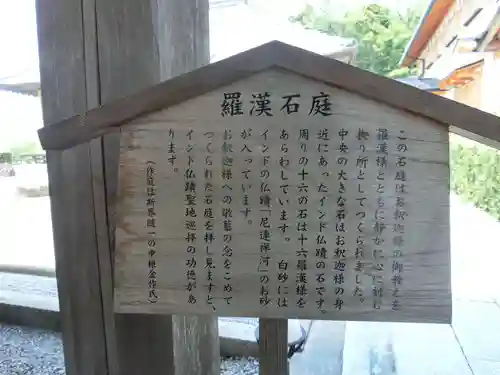 羅漢石庭
この石庭はお釈迦様の御姿とを
羅漢様とともに静かに心に刻む
拠り所としてつくられました。
中央の大きな石はお釈迦様の身
近にあったインド仏蹟の石です。
周りの十六の石は十六羅漢様を
あらわしています。 白砂には
インドの仏蹟「尼連禅河」のお砂
が入っています。
お釈迦様への敬慕の念をこめて
つくられた石庭を拝し見ますと、
インド仏蹟聖地巡拝の功徳があ
ります。
(作庭は斯界随一の中根金作氏)